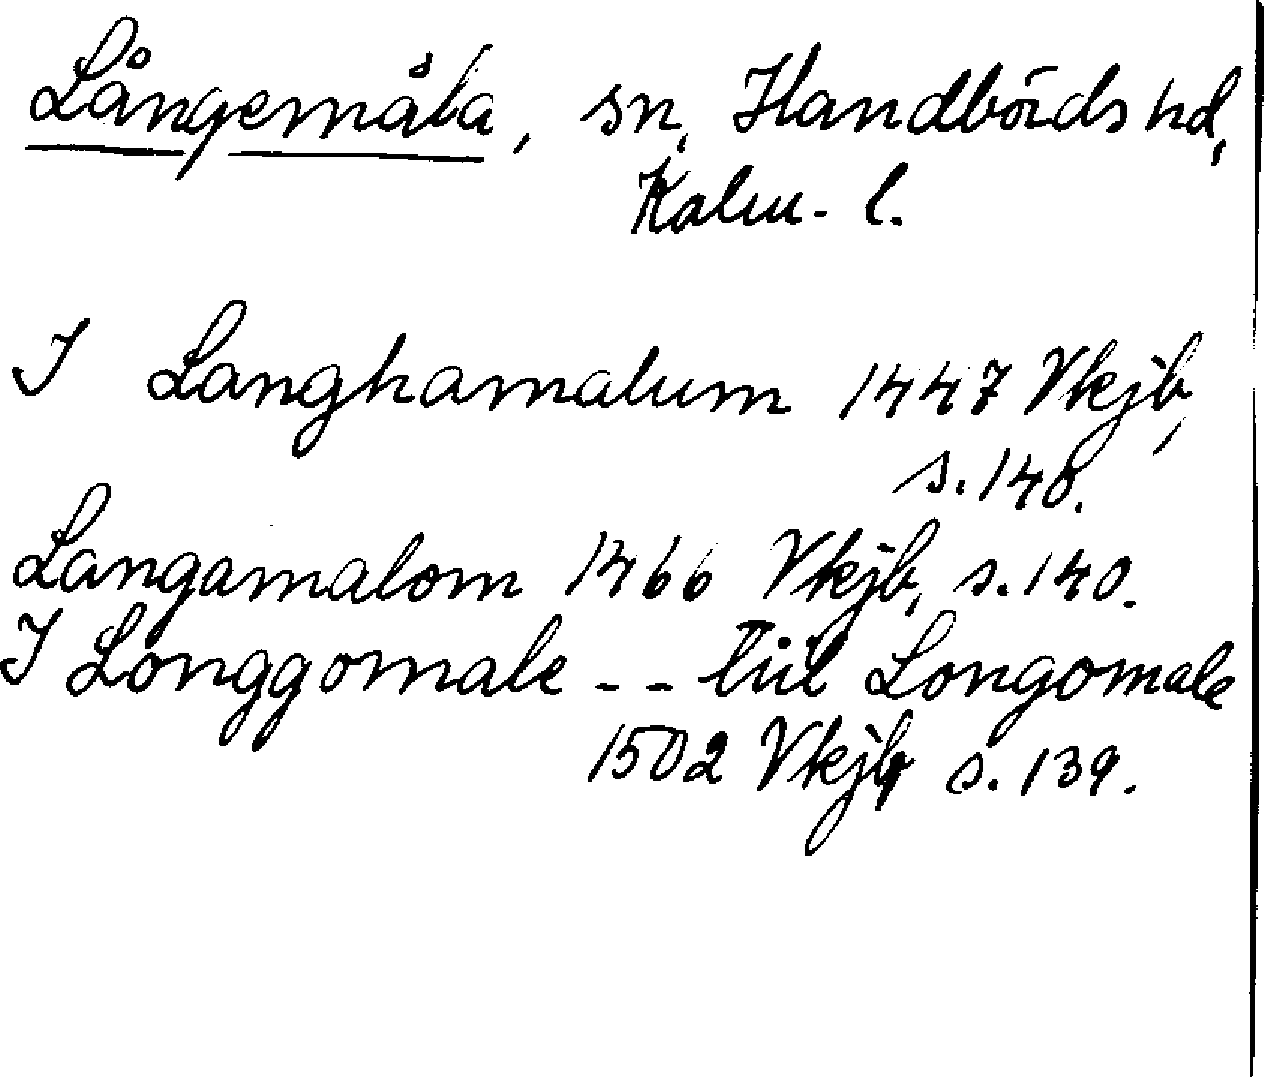 Långemåla, sn, Handbörds hd,
Kalm. l.
I Langhamalum 1447 Vkjb,
s. 140.
Langamalom 1466 Vkjb, s. 140.
I Longgomale -- tiil Longomale
1502 Vkjb, s. 139.